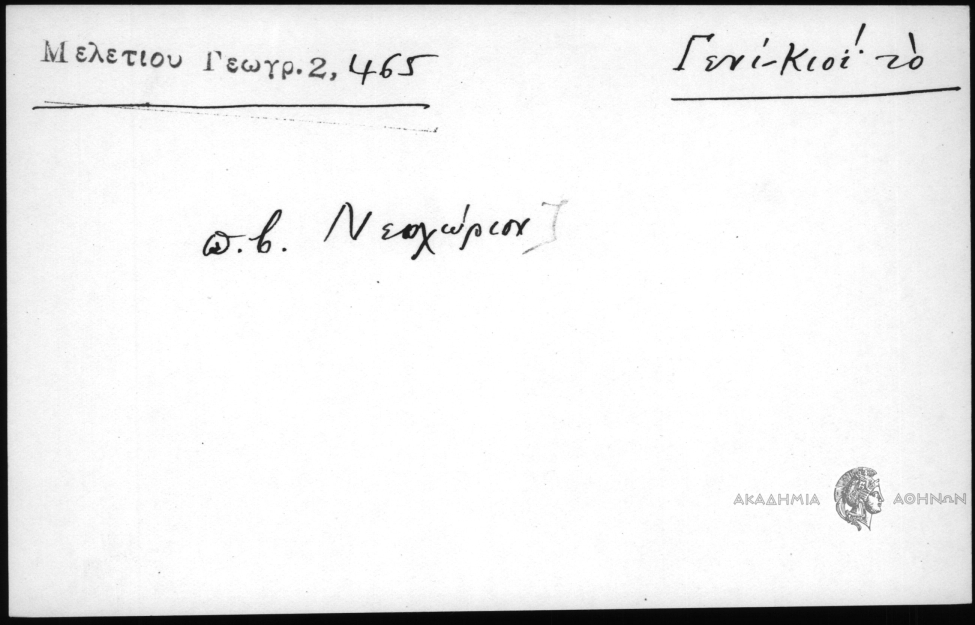 Μελετιου Γεωγρ. 2, 465
Γενί-Κιοΐ τὸ
π.β. Νεοχώριον]
ΑΚΑΔΗΜΙΑ ΑΘΗΝΩΝ